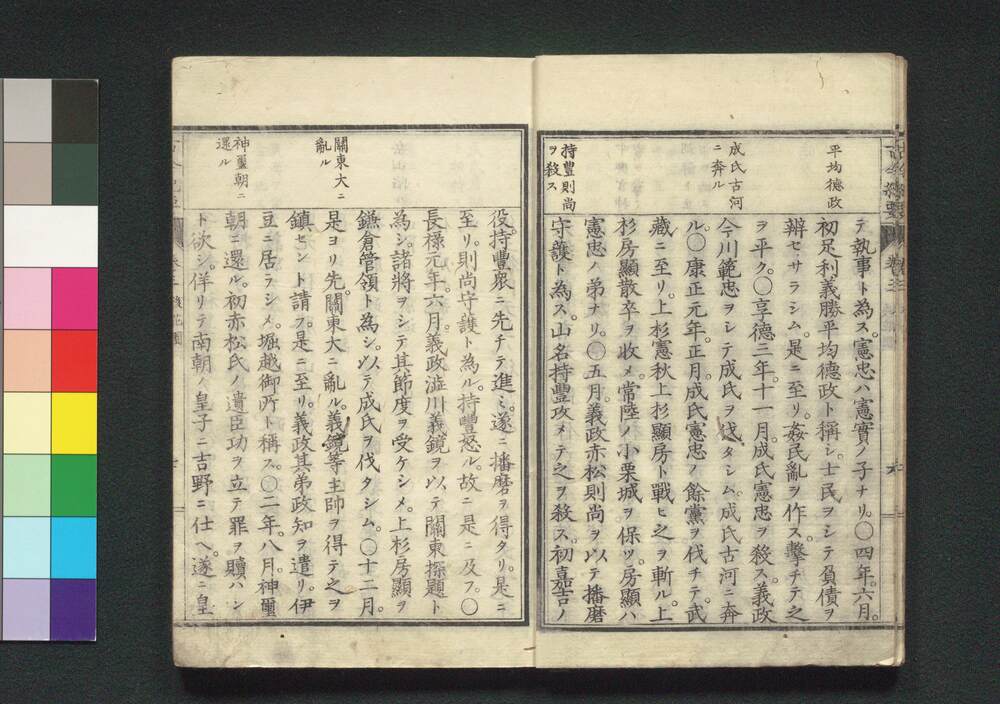 平均徳政
成氏古河
ニ奔ル
持豐則尚
ヲ殺ス
テ執事ト為ス。憲忠ハ憲實ノ子ナリ。〇四年。六月。
初足利義勝平均徳政ト稱シ。士民ヲシテ負債ヲ
辨セサラシム。是ニ至リ。姦民亂ヲ作ス。擊チテ之
ヲ平ク。〇享德三年。十一月。成氏憲忠ヲ殺ス。義政
今川範忠ヲシテ成氏ヲ伐タシム。成氏古河ニ奔
ル。〇康正元年。正月。成氏憲忠ノ餘黨ヲ伐チテ。武
藏ニ至リ。上杉憲秋上杉顯房ト戰ヒ之ヲ斬ル。上
杉房顯散卒ヲ收メ。常陸ノ小栗城ヲ保ツ。房顯ハ
憲忠ノ弟ナリ。〇五月。義政赤松則尚ヲ以テ播磨
守護ト為ス。山名持豐攻メテ之ヲ殺ス。初嘉吉ノ
關東大ニ
亂ル
神璽朝ニ
還ル
役。持豐衆ニ先チテ進ミ。遂ニ播磨ヲ得タリ。是ニ
至リ。則尚守護ト為ル。持豐怒ル。故ニ是ニ及フ。〇
長祿元年。六月。義政澁川義鏡ヲ以テ關東探題ト
為シ。諸將ヲシテ其節度ヲ受ケシメ。上杉房顯ヲ
鎌倉管領ト為シ。以テ成氏ヲ伐タシム。〇十二月。
是ヨリ先。關東大ニ亂ル。義鏡等主帥ヲ得テ之ヲ
鎮セント請フ。是ニ至リ。義政其弟政知ヲ遣リ。伊
豆ニ居ラシメ。堀越御所ト稱ス。〇二年。八月。神璽
朝ニ還ル。初赤松氏ノ遺臣功ヲ立テ罪ヲ贖ハン
ト欲シ。佯リテ南朝ノ皇子ニ吉野ニ仕ヘ。遂ニ皇